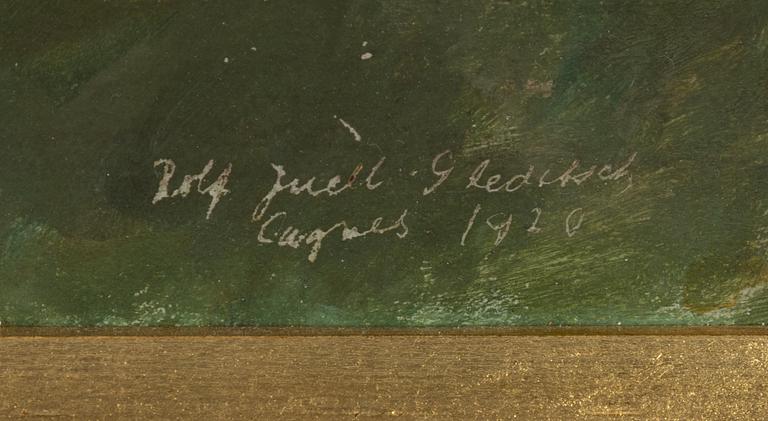 Rolf Juell Gleditsch
Cagnes 1920